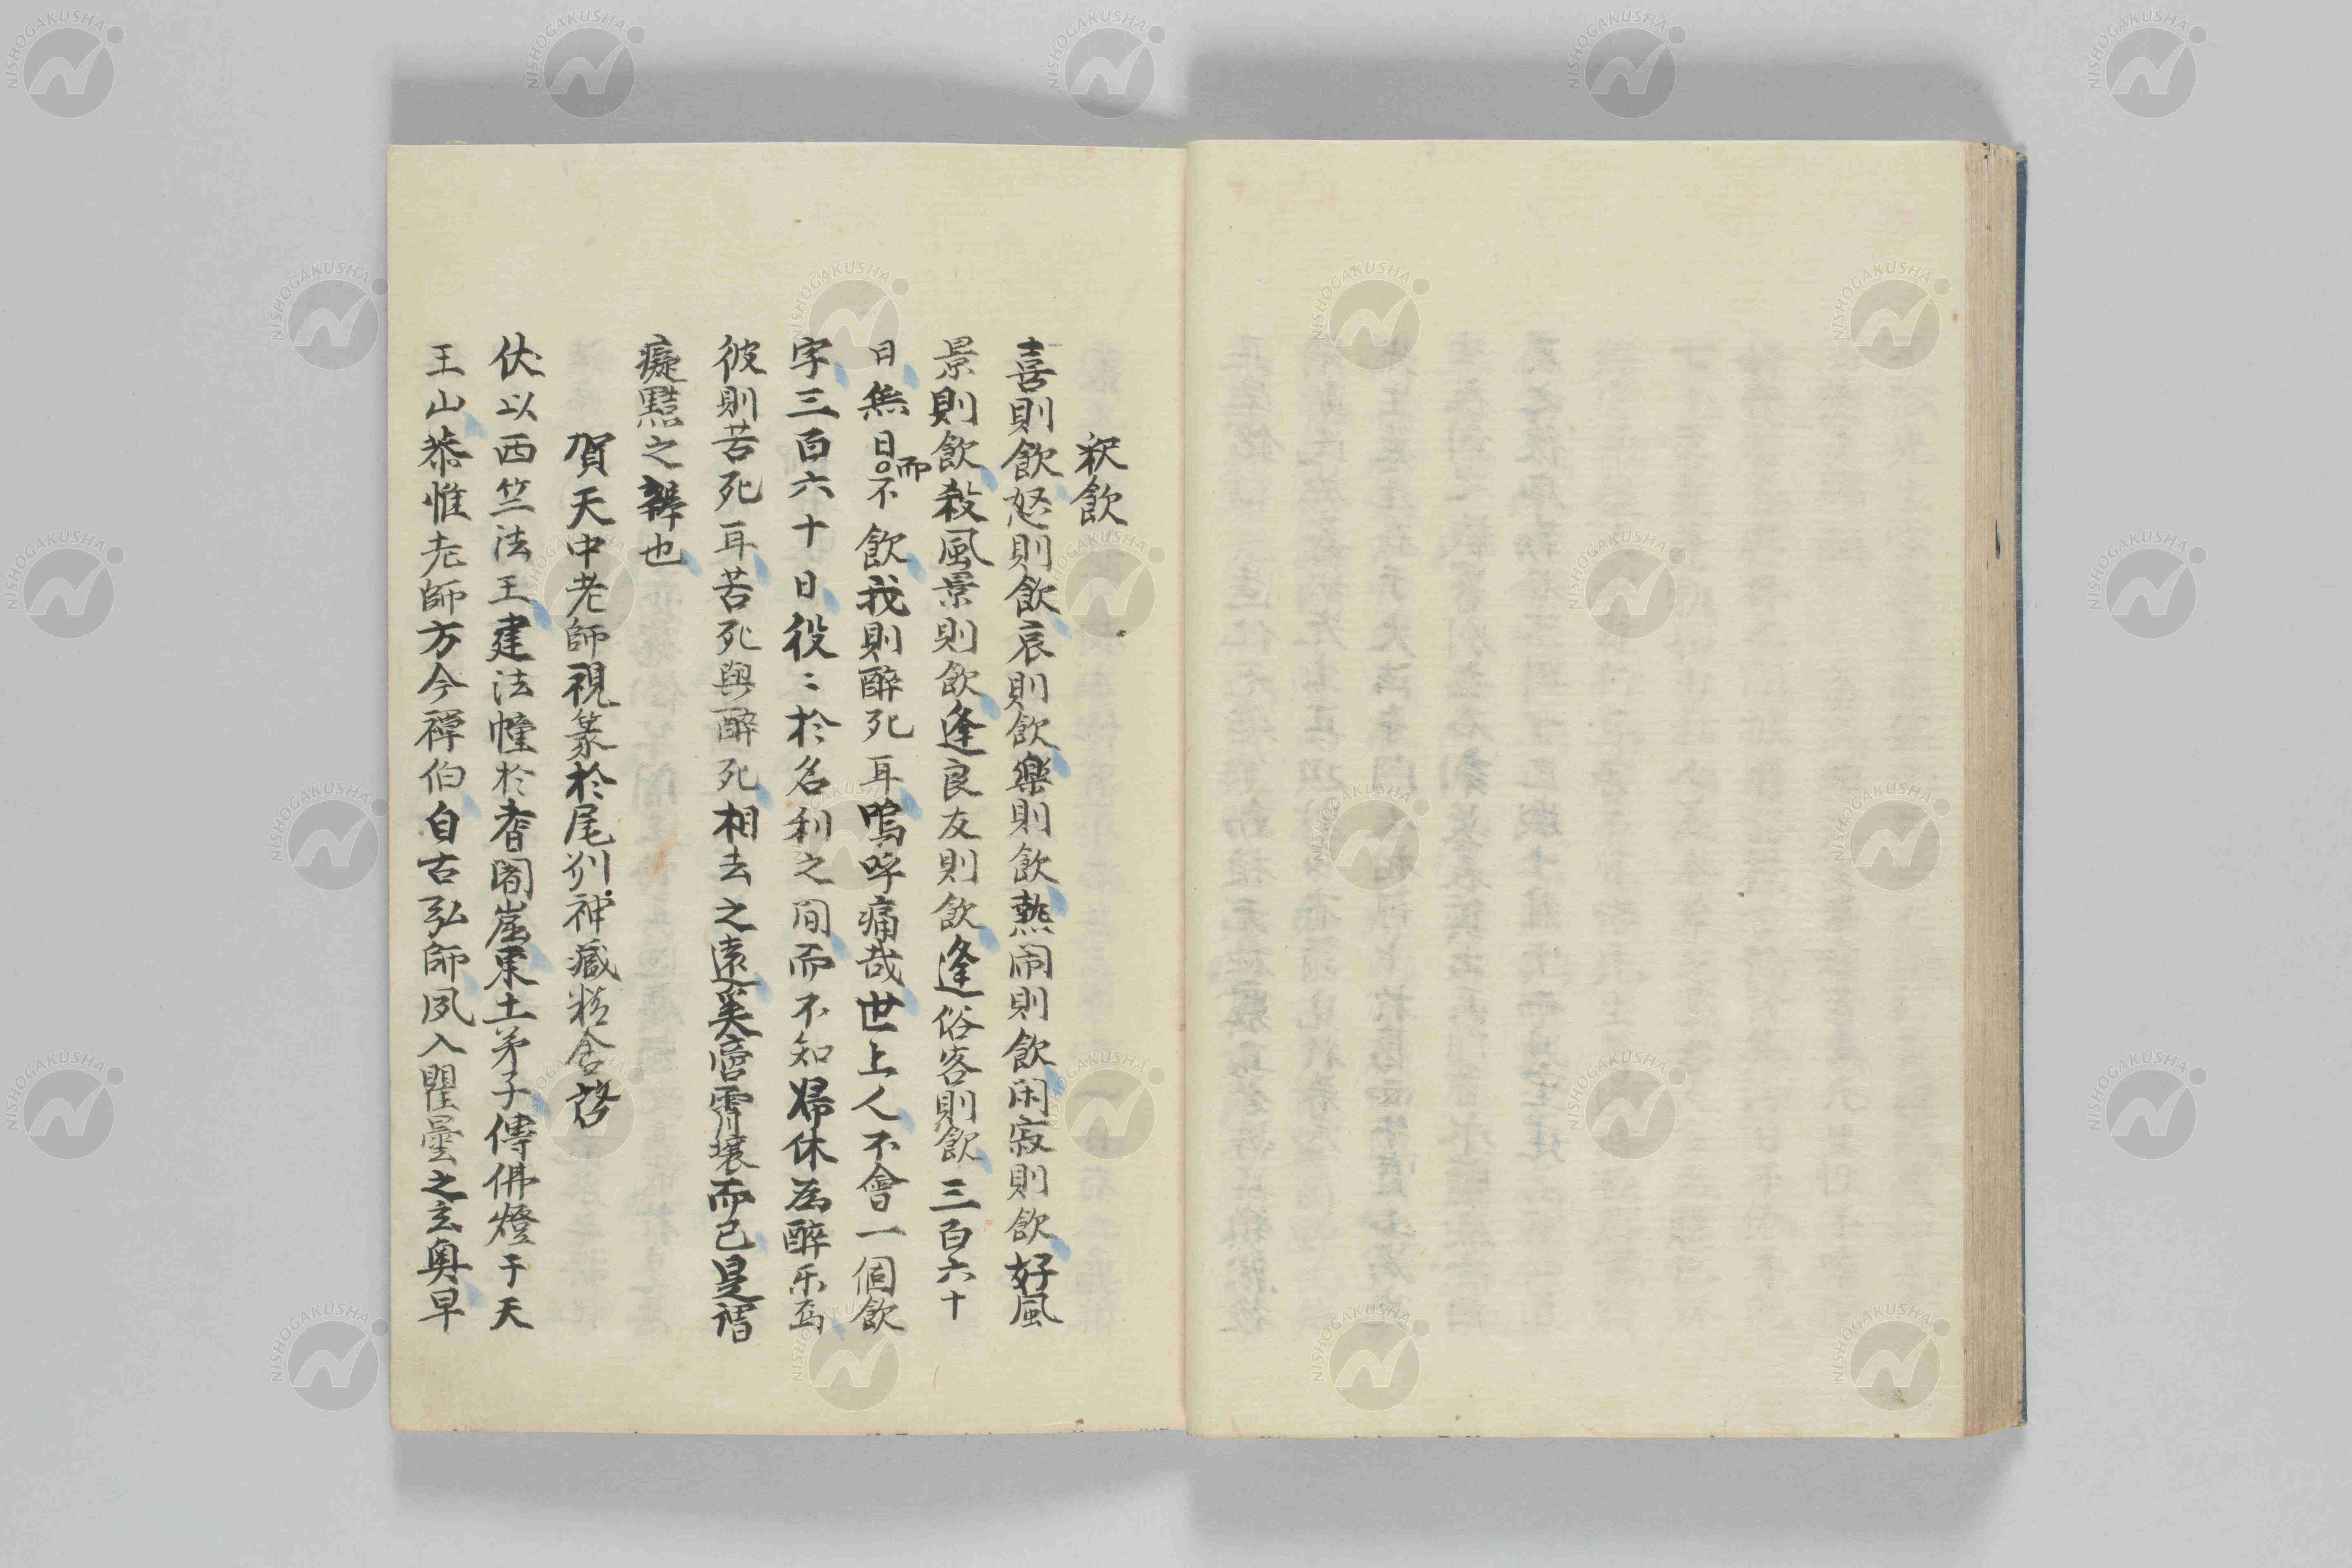 釈飲
喜則飲怒則飲哀則飲楽則飲熱閙則飲閑寂則飲好風
景則飲殺風景則飲逢良友則飲逢俗客則飲三百六十
日無日而不飲我則酔死耳嗚呼痛哉世上人不會一個飲
字三百六十日役〻於名利之間而不知帰休為酔乐焉
彼則苦死耳苦死與酔死相去之遠奚啻霄壌而已是謂
癡黠之辨也
賀天中老師視篆於尾刕神蔵精舎啓
伏以西竺法王建法幢於耆闍崛東土弟子傳佛燈于天
王山恭惟老師方今禅伯自古弘師夙入瞿曇之玄奥早
NISHOGAKUSHA